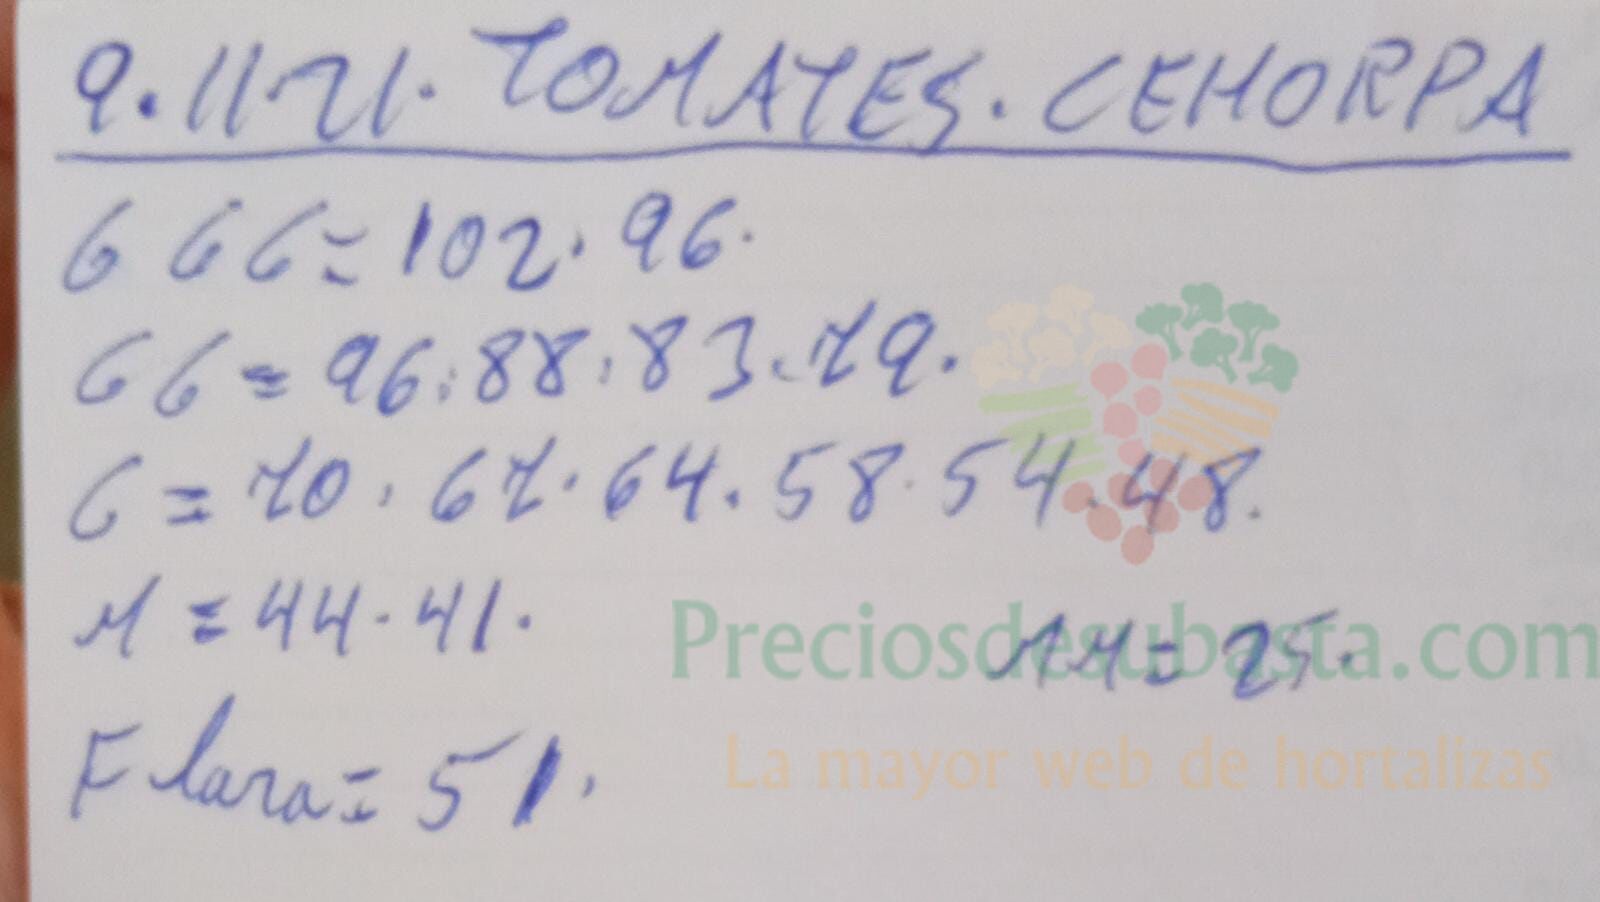 9.11.21. TOMATES. CEHORPA
GGG = 102. 96.
GG = 96. 88. 83. 79.
G = 70. 67. 64. 58. 54. 48.
M = 44. 41.
MM = 25.
F lara = 51.
Preciosdesubasta.com
La mayor web de hortalizas